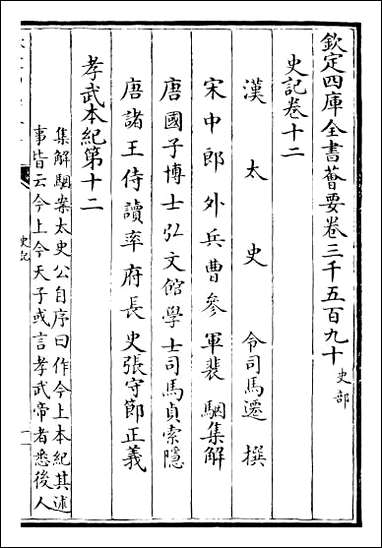 欽定四庫全書薈要卷三千五百九十 史部
史記卷十二
漢太史令司馬遷撰
宋中郎外兵曹參軍裴駰集解
唐國子博士弘文館學士司馬貞索隱
唐諸王侍讀率府長史張守節正義
孝武本紀第十二
集解駰案太史公自序曰作今上本紀其述
事皆云今上今天子或言孝武帝者悉後人
史記